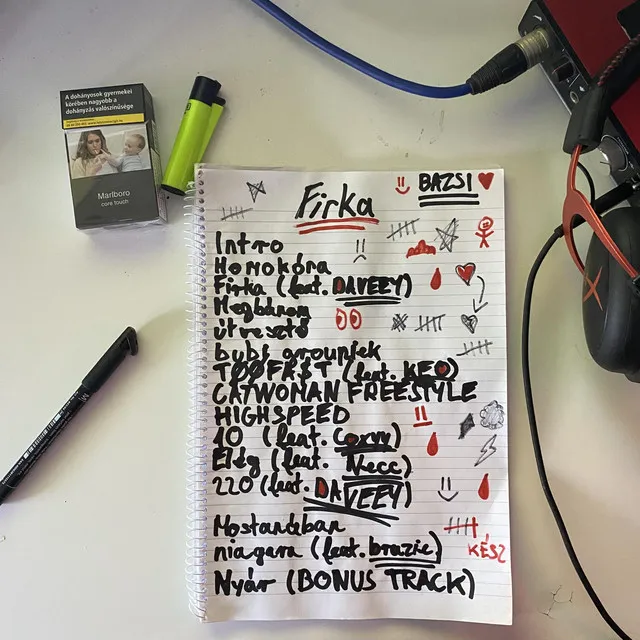 A dohányosok gyermekei
körében nagyobb a
dohányzás valószínűsége
Marlboro
core touch
BAZSI
Firka
Intro
Homokóra
Firka (feat. DAVEEY)
Megbánom
útvesztő
bybl groupiek
TØØFA$T (feat. KEO)
CATWOMAN FREESTYLE
HIGHSPEED
10 (feat. Coxvv)
Eldg (feat. Necc)
220 (feat. DAVEEY)
Mostanában
niagara (feat. brazie)
KÉSZ
Nyár (BONUS TRACK)